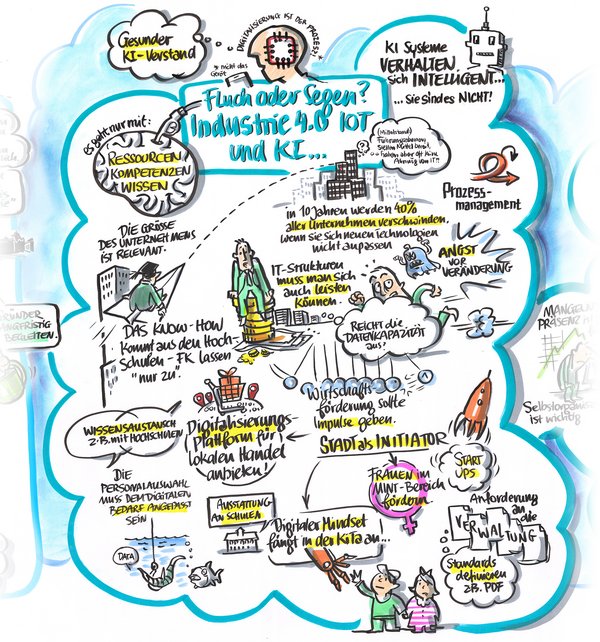 Gesunder
KI-Verstand
DIGITALISIERUNG IST DER PROZESS*
* nicht das
Gerät
KI Systeme
VERHALTEN
sich INTELLIGENT...
... Sie sind es NICHT!
Fluch oder Segen?
Industrie 4.0 IOT
und KI...
es geht nur mit:
RESSOURCEN
KOMPETENZEN
WISSEN
(Mittelstand)
haben aber oft keine
Ahnung von IT!!
Prozess-
management
in 10 Jahren werden 40%
aller Unternehmen verschwinden,
wenn sie sich neuen Technologien
nicht anpassen
DIE GRÖSSE
DES UNTERNEHMENS
IST RELEVANT.
IT-STRUKTUREN
muss man sich
auch leisten
können.
ANGST
VOR
VERÄNDERUNG
REICHT die
DATENKAPAZITÄT
aus?
DAS KNOW-HOW
kommt aus den Hoch-
schulen - FK lassen
"nur zu".
GRÜNDER
BEGLEITEN.
MANGELN
PRÄSENZ
Selbstorganis
ist wichtig
Wirtschafts-
förderung sollte
Impulse geben.
STADT als INITIATOR
Digitalisierungs-
Plattform für
lokalen Handel
anbieten!
WISSENSAUSTAUSCH
z.B. mit HOCHSCHULEN
START
UPS
FRAUEN im
MINT-Bereich
fördern
DIE
PERSONALAUSWAHL
MUSS DEM DIGITALEN
BEDARF ANGEPASST
SEIN
AUSSTATTUNG
AN SCHULEN
Anforderung
an die
VERWALTUNG
Digitaler Mindset
fängt in der Kita an...
DATA
Standards
definieren
z.B. PDF